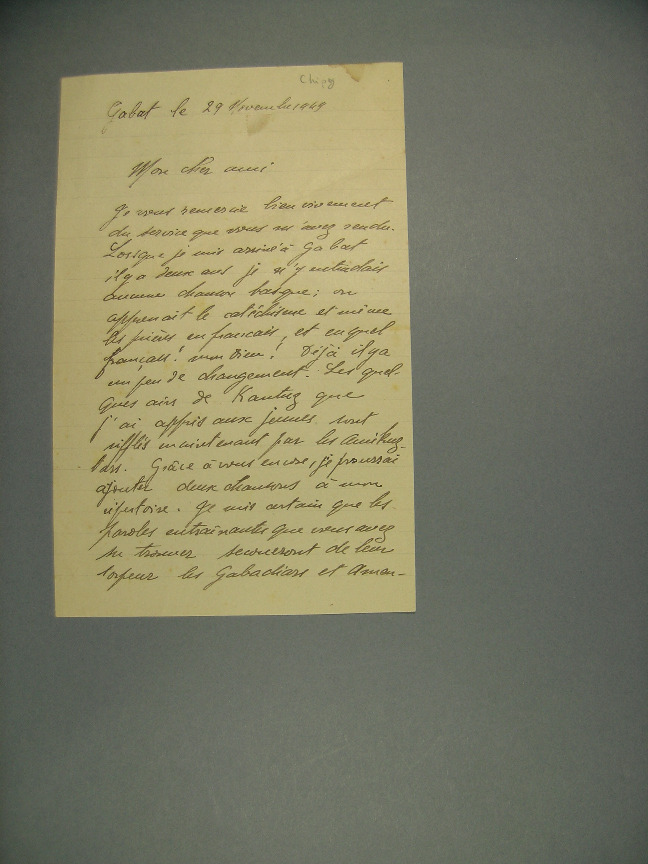 Chipy
Gabat le 29 Novembre 1949
Mon cher ami
Je vous remercie bien vivement
du service que vous m'avez rendu.
Lorsque je suis arrivé à Gabat
il y a deux ans je n'y entendais
aucune chanson basque; on
apprenait le catéchisme et même
les prières en français, et en quel
français! mon Dieu! Déjà il y a
un peu de changement. Les quel-
ques airs de Kantuz que
j'ai appris aux jeunes sont
sifflés maintenant par les Amikuz-
tars. Grâce à vous encore, je pourrai
ajouter deux chansons à mon
répertoire. Je suis certain que les
paroles entraînantes que vous avez
su trouver secoueront de leur
torpeur les Gabadiars et Amen-